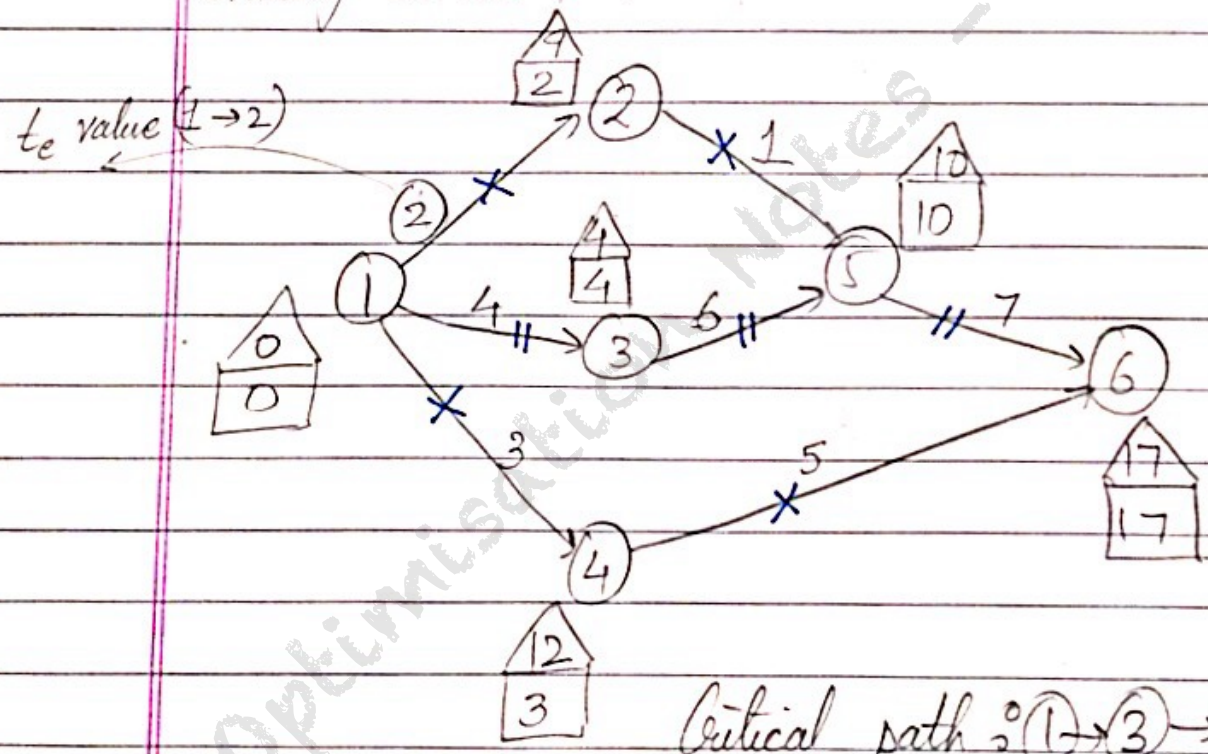 9
2
2
te value (1→2)
1
10
10
2
4
4
5
1
4
6
7
3
0
0
6
3
5
17
17
4
12
3
Critical path : 1 → 3 →
Optimisation Notes -